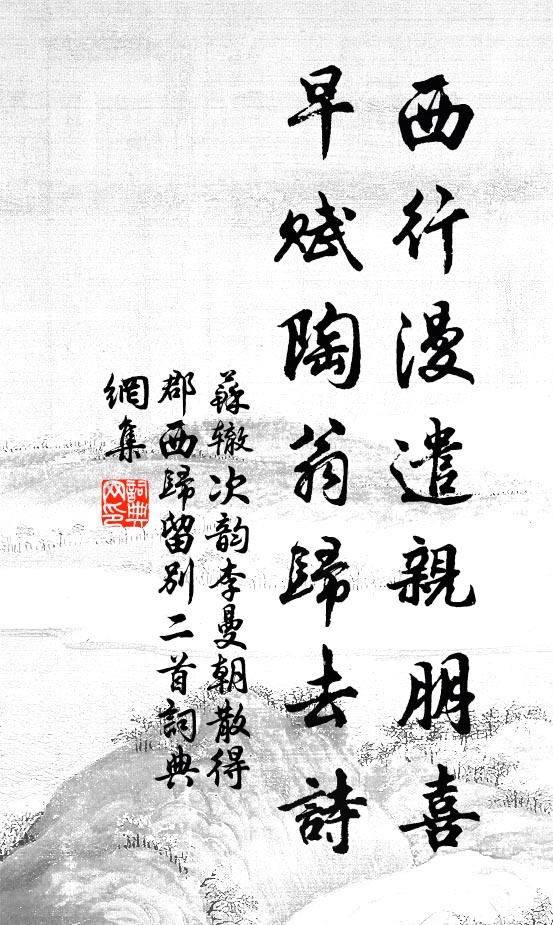 西行漫遣親朋喜
早賦陶翁歸去詩
蘇轍次韵李曼朝散得
郡西歸留別二首詞典
網集
詞典
网印